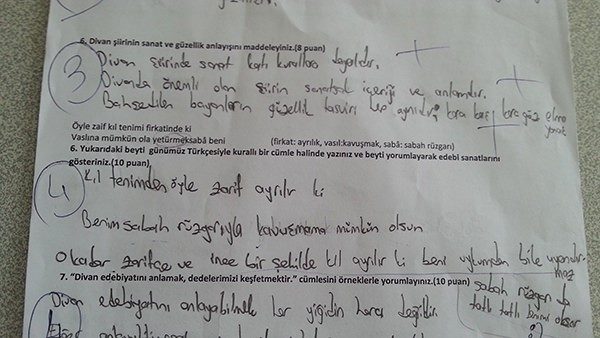 6. Divan şiirinin sanat ve güzellik anlayışını maddeleyiniz.(8 puan)
3
Divan şiirinde sanat katı kurallara dayalıdır.
Divanda önemli olan şiirin sanatsal içeriği ve anlamıdır.
Bahsedilen bayanların güzellik tasviri hep aynıdır, kara kaş, kara göz, elma yanak
Öyle zaif kıl tenimi firkatinde ki
Vaslına mümkün ola yetürmeksabâ beni (firkat: ayrılık, vasıl:kavuşmak, sabâ: sabah rüzgarı)
6. Yukarıdaki beyti günümüz Türkçesiyle kurallı bir cümle halinde yazınız ve beyti yorumlayarak edebi sanatlarını
gösteriniz.(10 puan),
4
Kıl tenimden öyle zarif ayrılır ki
Benim sabah rüzgarıyla kavuşmama mümkün olsun
O kadar zarifçe ve ince bir şekilde kıl ayrılır ki beni uykumdan bile uyandırmaz
sabah rüzgarı da
tatlı tatlı
7. "Divan edebiyatını anlamak, dedelerimizi keşfetmektir." cümlesini örneklerle yorumlayınız.(10 puan)
Divan edebiyatını anlayabilmek her yiğidin harcı değildir.